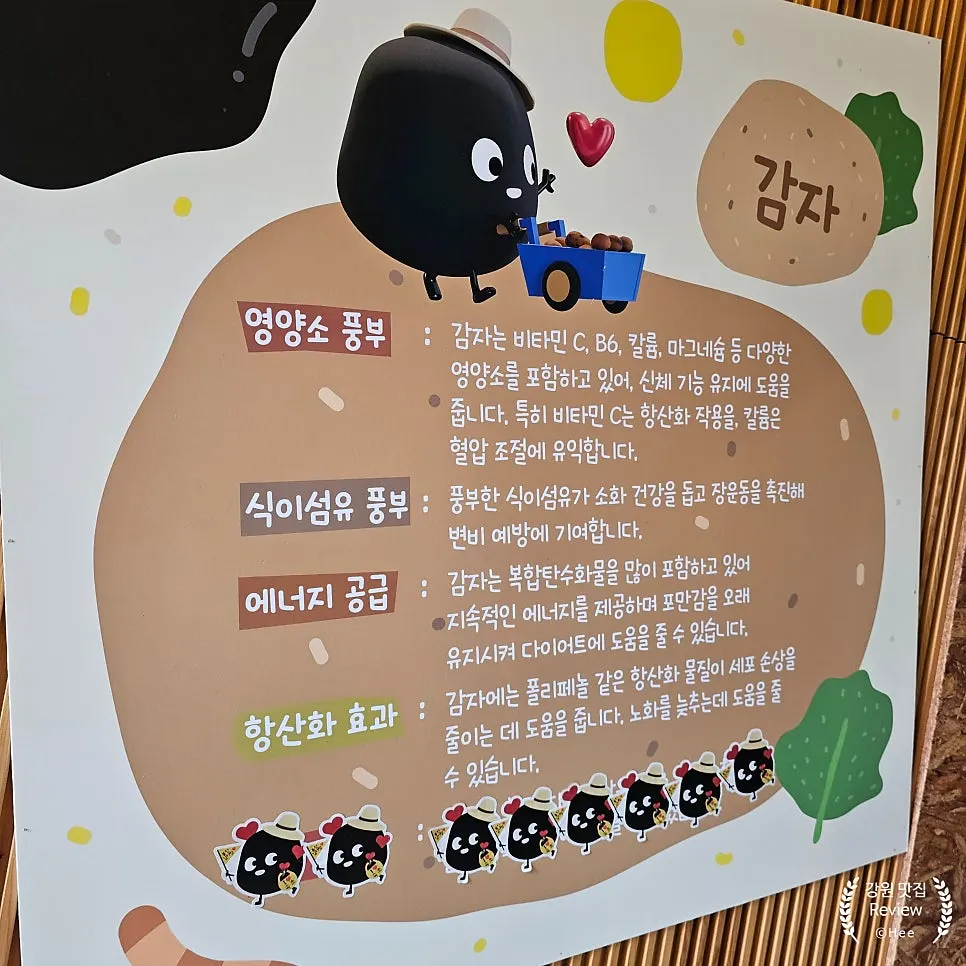 감자
영양소 풍부 : 감자는 비타민 C, B6, 칼륨, 마그네슘 등 다양한
영양소를 포함하고 있어, 신체 기능 유지에 도움을
줍니다. 특히 비타민 C는 항산화 작용을, 칼륨은
혈압 조절에 유익합니다.
식이섬유 풍부 : 풍부한 식이섬유가 소화 건강을 돕고 장운동을 촉진해
변비 예방에 기여합니다.
에너지 공급 : 감자는 복합탄수화물을 많이 포함하고 있어
지속적인 에너지를 제공하며 포만감을 오래
유지시켜 다이어트에 도움을 줄 수 있습니다.
항산화 효과 : 감자에는 폴리페놀 같은 항산화 물질이 세포 손상을
줄이는 데 도움을 줍니다. 노화를 늦추는데 도움을 줄
수 있습니다.
:
강원 맛집
Review
©Hee